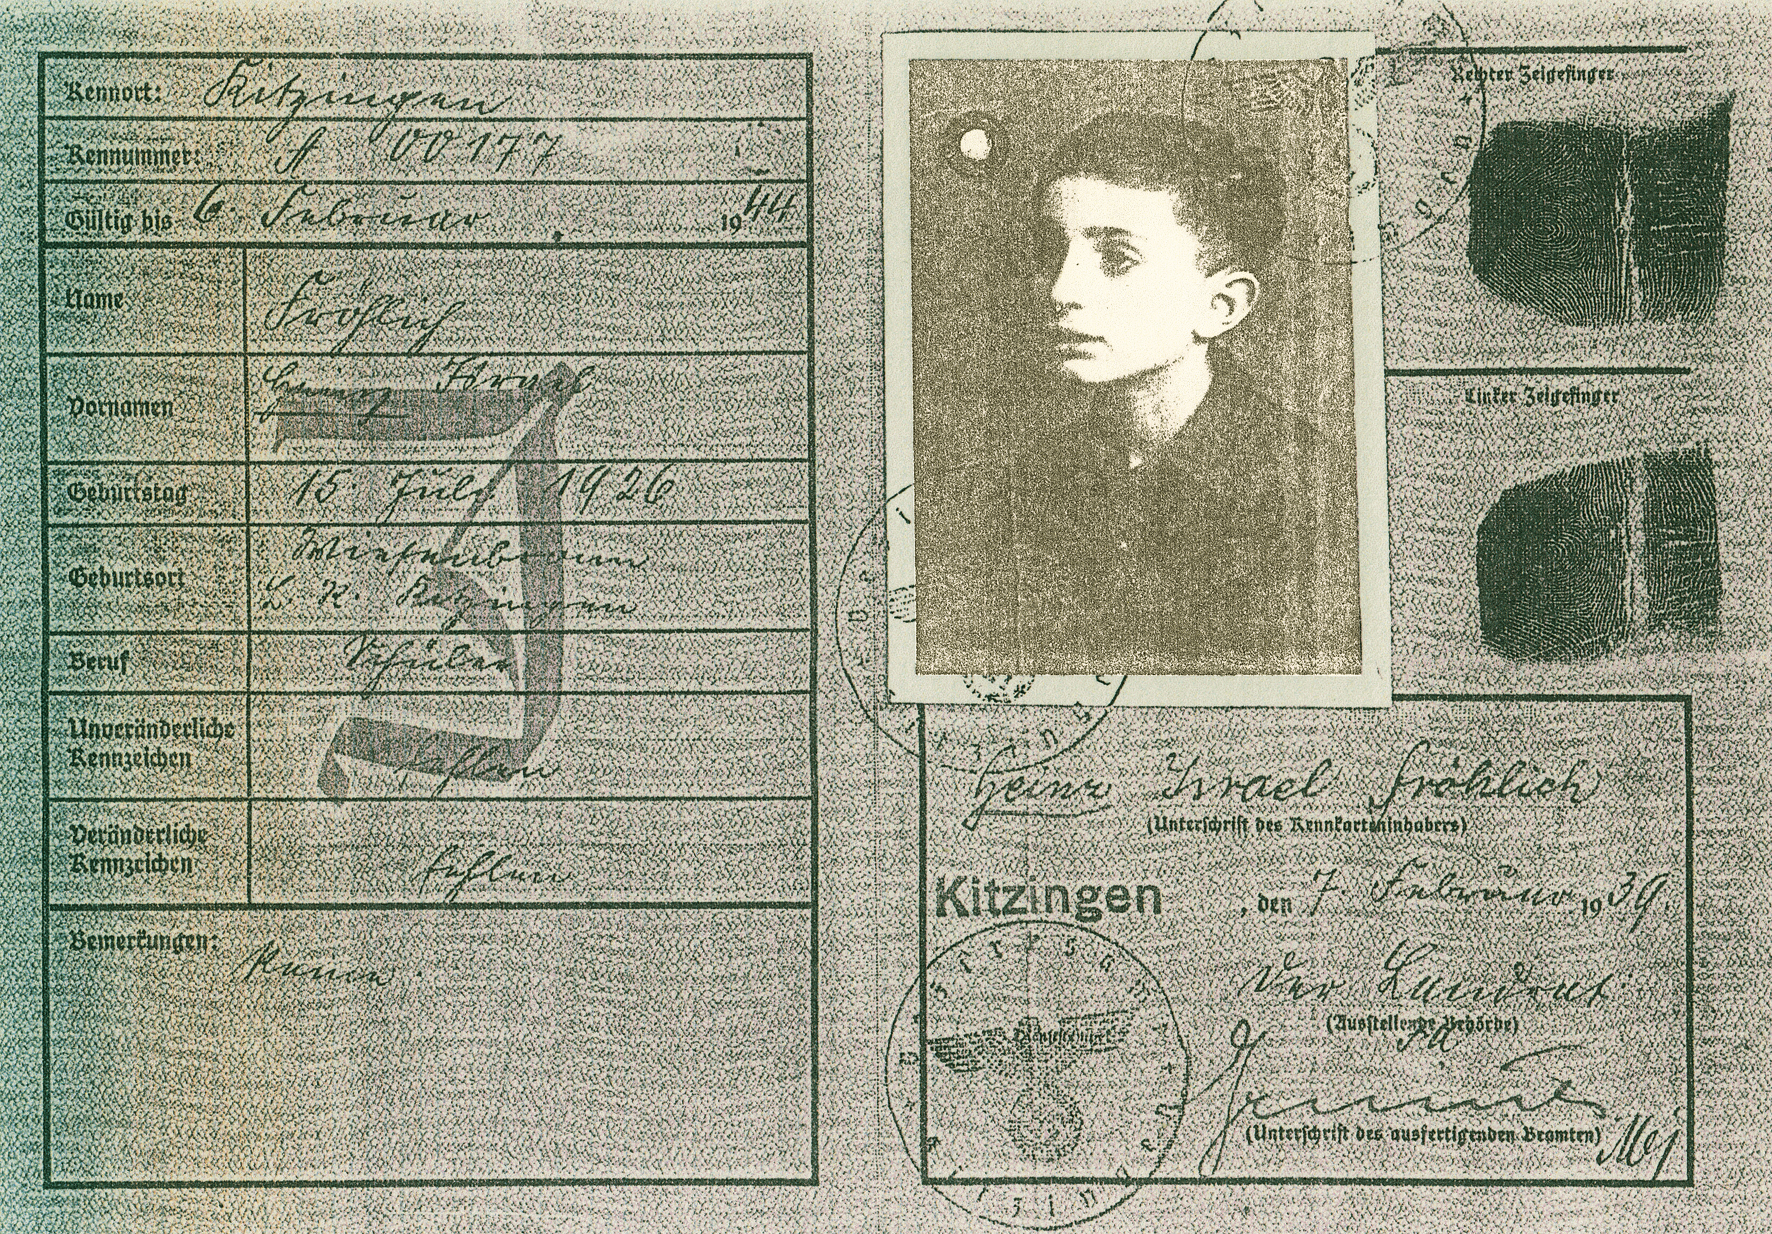 Kennort: Kitzingen
Kennummer: A 00177
Gültig bis 6. Februar 1944
Name Fröhlich
Vornamen Heinz Israel
Geburtstag 15. Juli 1926
Geburtsort Wiesenbronn
L. K. Kitzingen
Beruf Schüler
Unveränderliche
Kennzeichen fehlen
Veränderliche
Kennzeichen fehlen
Bemerkungen: Keine.
J
Rechter Zeigefinger
Linker Zeigefinger
Heinz Israel Fröhlich
(Unterschrift des Kennkarteninhabers)
Kitzingen, den 7. Februar 1939.
Der Landrat
(Ausstellende Behörde)
(Unterschrift des ausfertigenden Beamten)
Dienststempel
Bezirksamt
Kitzingen